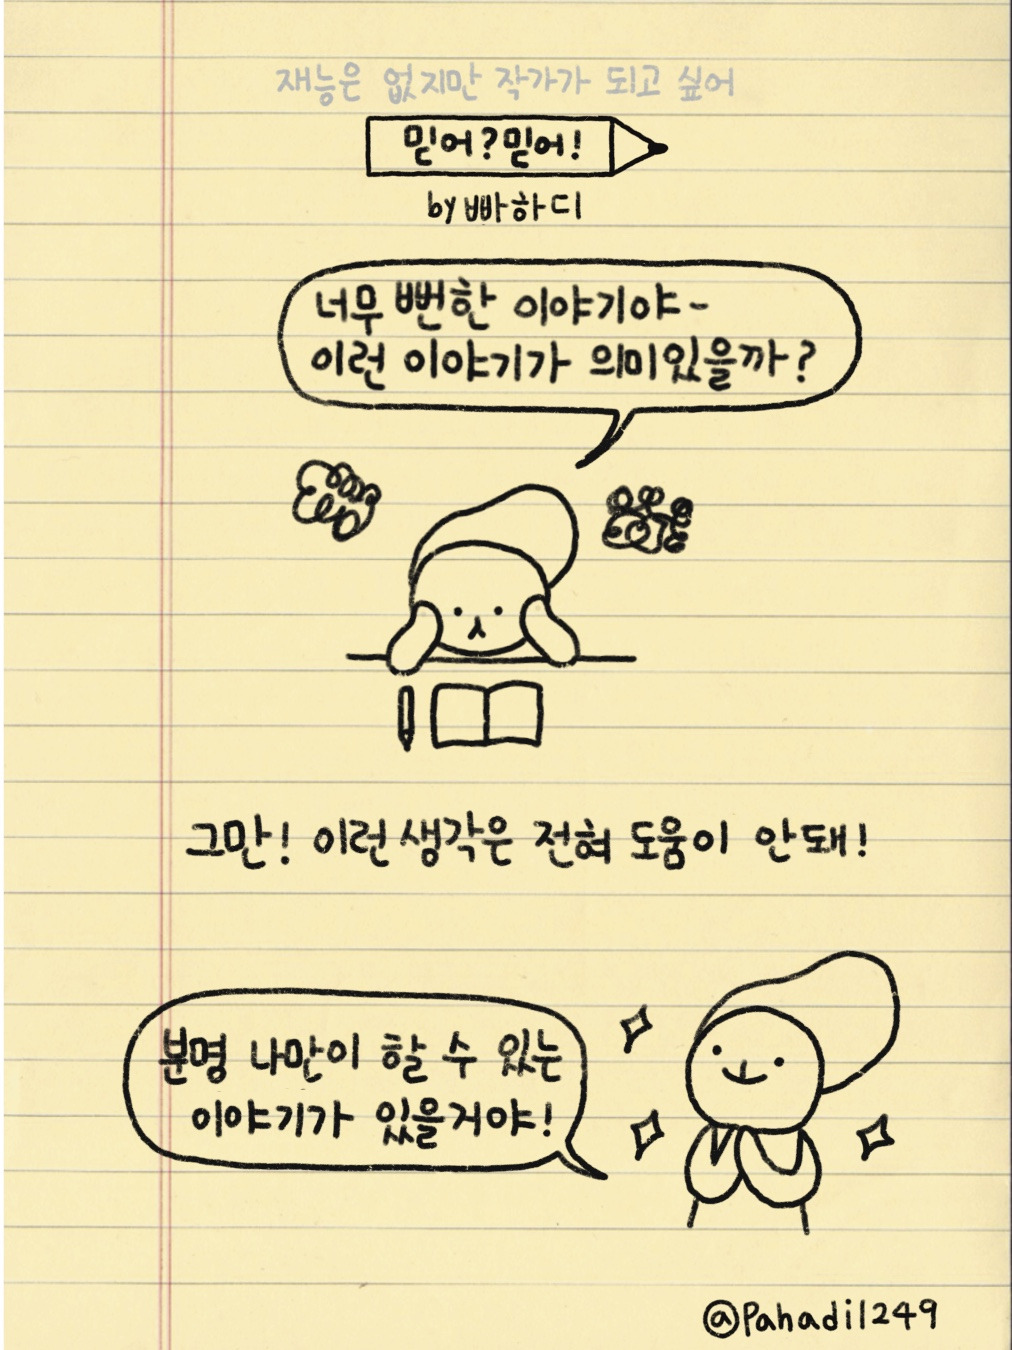 재능은 없지만 작가가 되고 싶어
믿어?믿어!
by 빠하디
너무 뻔한 이야기야-
이런 이야기가 의미있을까?
그만! 이런 생각은 전혀 도움이 안돼!
분명 나만이 할 수 있는
이야기가 있을거야!
@Pahadi1249